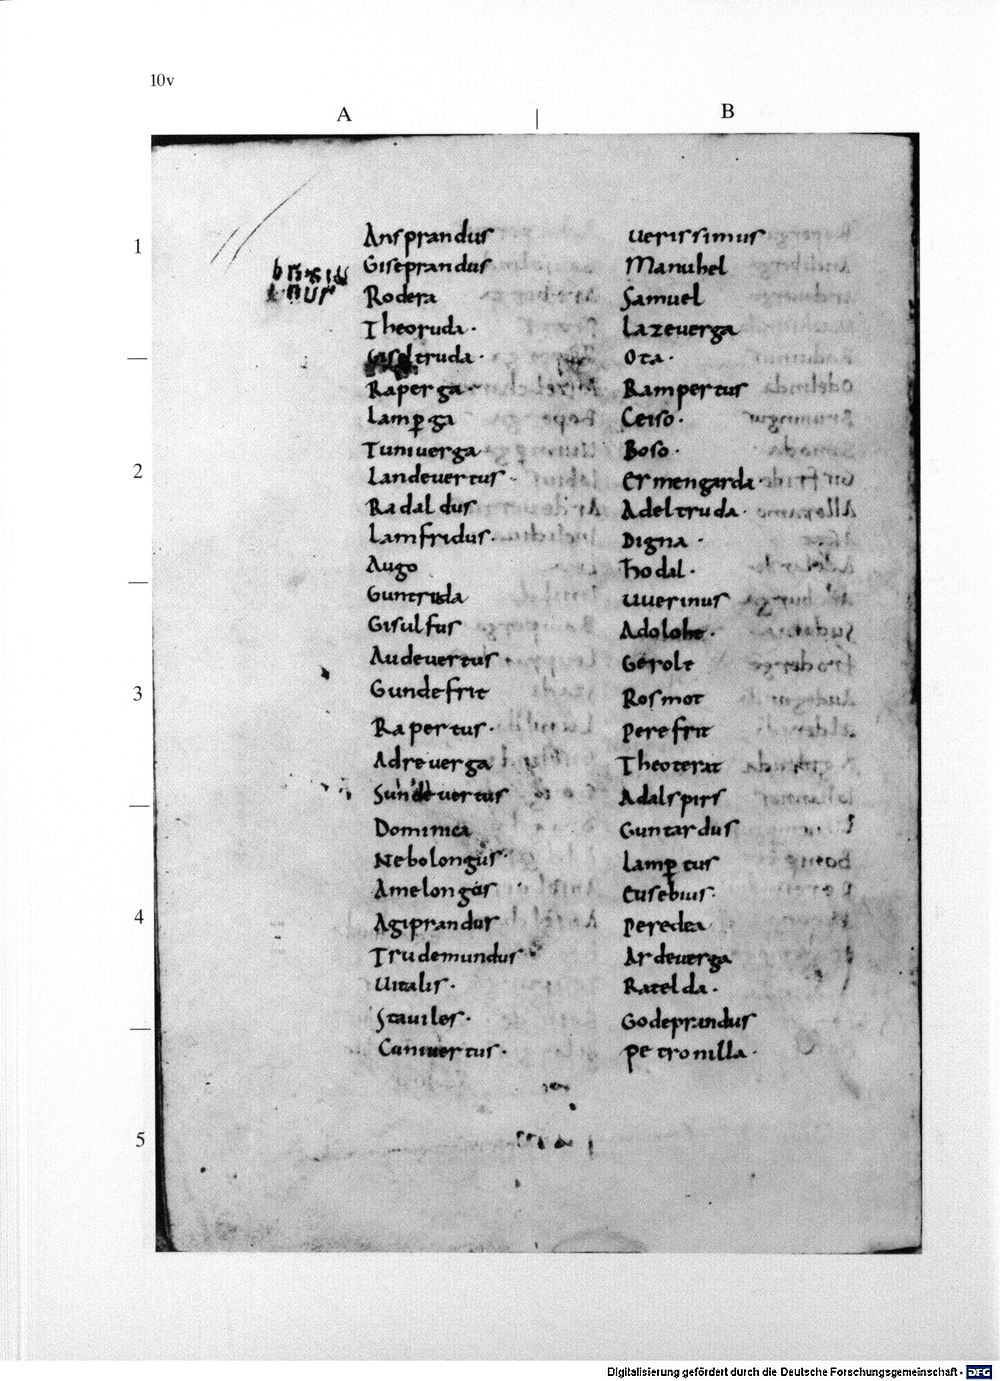 10v
A
B
1
2
3
4
5
Ansprandus
Giseprandus
Rodera
Theoruda.
truda.
Raperga.
Lamp̱ga
Tuniuerga
Landeuertus.
Radaldus
Lamfridus.
Augo
Guntruda
Gisulfus
Audeuertus.
Gundefrit
Rapertus.
Adreuerga
Sundeuertus
Dominica
Nebolongus.
Amelongus
Agiprandus
Trudemundus
Uitalis.
Stauiles.
Cuniuertus.
uerissimus
Manuhel
Samuel
Lazeuerga
Ota.
Rampertus
Ceiso.
Boso.
Ermengarda.
Adeltruda.
Digna.
hodal.
uuerinus
Adoloht.
Gerolt
Rosmot
perefrit
Theoterat
Adalspirs
Guntardus
Lamp̱tus
Eusebius.
peredea
Ardeuerga
Ratelda.
Godeprandus
petronilla.
Digitalisierung gefördert durch die Deutsche Forschungsgemeinschaft - DFG